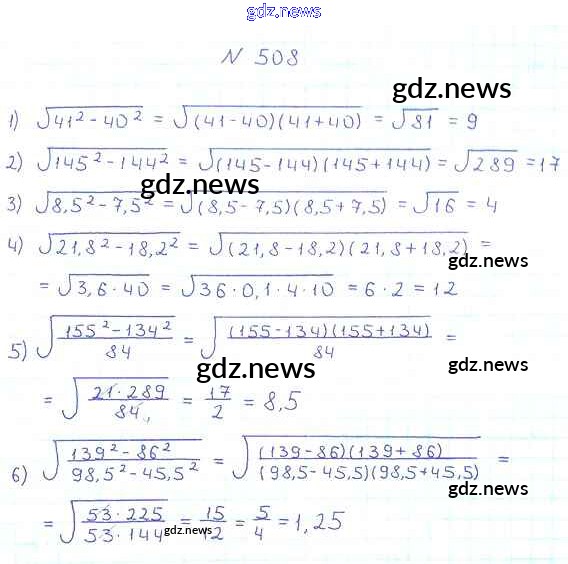 gdz.news
N 508
gdz.news
1) √41² - 40² = √(41-40)(41+40) = √81 = 9
2) √145² - 144² = √(145-144)(145+144) = √289 = 17
gdz.news
3) √8,5² - 7,5² = √(8,5-7,5)(8,5+7,5) = √16 = 4
4) √21,8² - 18,2² = √(21,8-18,2)(21,8+18,2) =
gdz.news
= √3,6·40 = √36·0,1·4·10 = 6·2 = 12
5) √(155² - 134²)/84 = √((155-134)(155+134))/84 =
gdz.news
= √(21·289)/84 = 17/2 = 8,5
6) √(139² - 86²)/(98,5² - 45,5²) = √((139-86)(139+86))/((98,5-45,5)(98,5+45,5)) =
gdz.news
= √(53·225)/(53·144) = 15/12 = 5/4 = 1,25
gdz.news
gdz.news